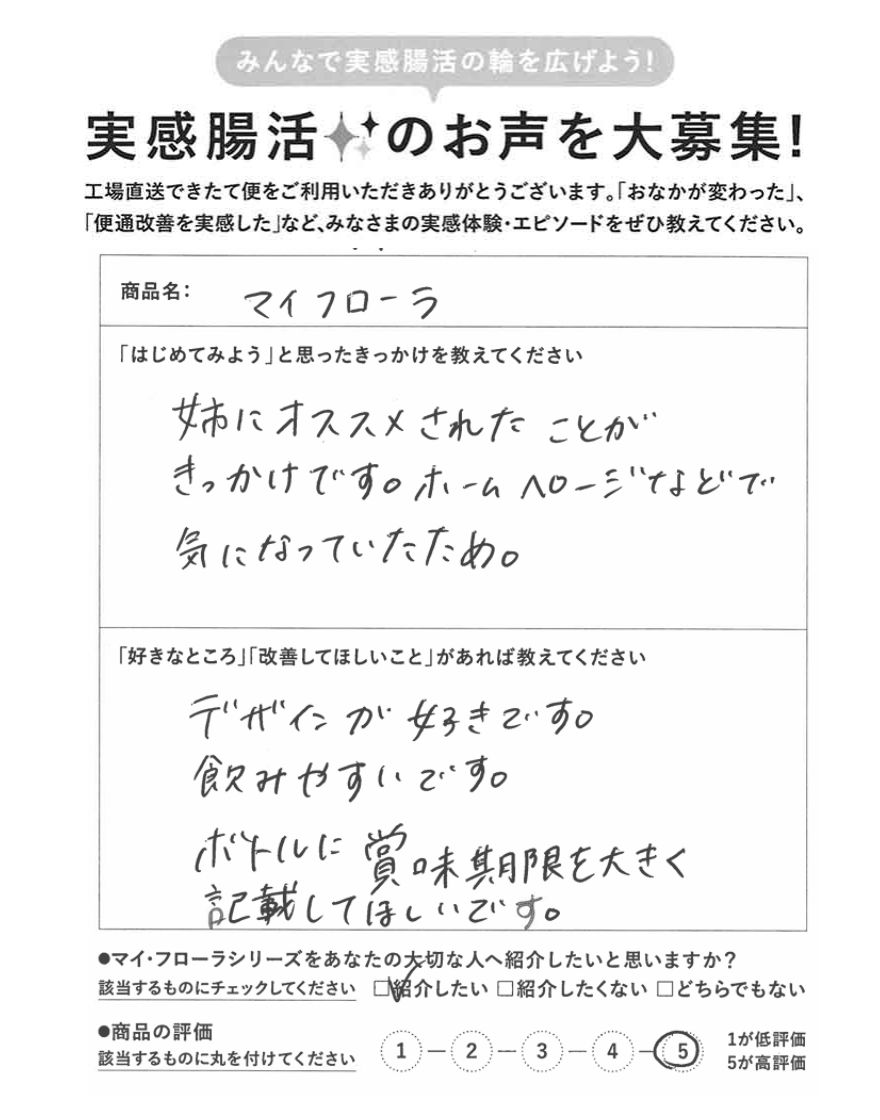 みんなで実感腸活の輪を広げよう!
実感腸活のお声を大募集!
工場直送できたて便をご利用いただきありがとうございます。「おなかが変わった」、
「便通改善を実感した」など、みなさまの実感体験・エピソードをぜひ教えてください。
商品名: マイフローラ
「はじめてみよう」と思ったきっかけを教えてください
姉にオススメされたことが
きっかけです。ホームページなどで
気になっていたため。
「好きなところ」「改善してほしいこと」があれば教えてください
デザインが好きです。
飲みやすいです。
ボトルに賞味期限を大きく
記載してほしいです。
●マイ・フローラシリーズをあなたの大切な人へ紹介したいと思いますか?
該当するものにチェックしてください □紹介したい □紹介したくない □どちらでもない
●商品の評価
該当するものに丸を付けてください
1 — 2 — 3 — 4 — 5
1が低評価
5が高評価